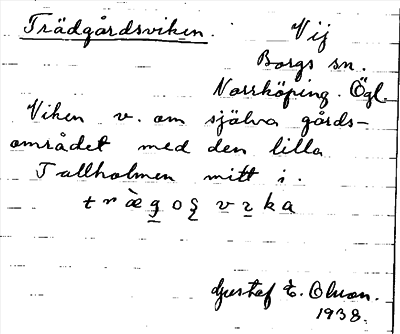 Trädgårdsviken. Vij
Borgs sn.
Norrköping. Ögl.
Viken v. om själva gårds-
området med den lilla
Tallholmen mitt i.
Gustaf E. Olsson.
1938.